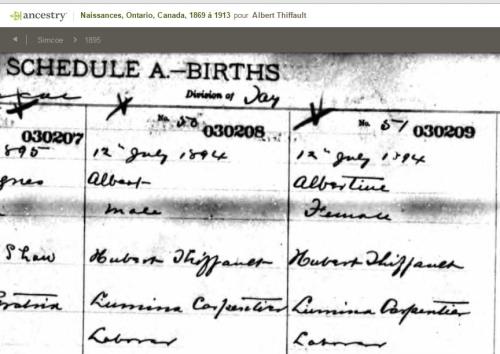 ancestry Naissances, Ontario, Canada, 1869 à 1913 pour Albert Thiffault
Simcoe > 1895
SCHEDULE A.—BIRTHS
Division of Tay
030207
No. 50 030208
No. 51 030209
1895
12th July 1894
12th July 1894
Albert
Albertine
Male
Female
Shaw
Hubert Thiffault
Hubert Thiffault
Lumina Carpentier
Lumina Carpentier
Laborer
Laborer